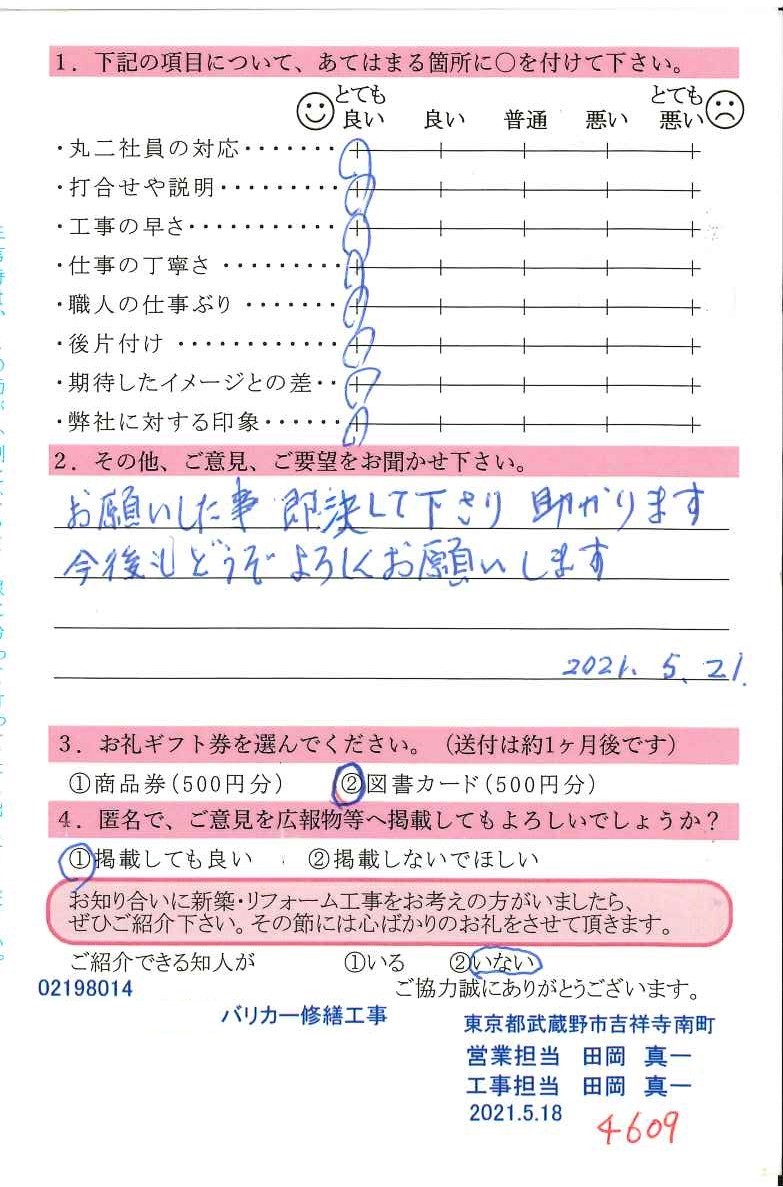 1．下記の項目について、あてはまる箇所に○を付けて下さい。
とても良い　良い　普通　悪い　とても悪い
・丸二社員の対応・・・・・・・
・打合せや説明・・・・・・・・・
・工事の早さ・・・・・・・・・・・
・仕事の丁寧さ・・・・・・・・・
・職人の仕事ぶり・・・・・・・
・後片付け・・・・・・・・・・・・
・期待したイメージとの差・・
・弊社に対する印象・・・・・・
2．その他、ご意見、ご要望をお聞かせ下さい。
お願いした事 即決して下さり 助かります
今後もどうぞよろしくお願いします
2021. 5. 21.
3．お礼ギフト券を選んでください。（送付は約1ヶ月後です）
①商品券（500円分）　②図書カード（500円分）
4．匿名で、ご意見を広報物等へ掲載してもよろしいでしょうか？
①掲載しても良い　②掲載しないでほしい
お知り合いに新築・リフォーム工事をお考えの方がいましたら、
ぜひご紹介下さい。その節には心ばかりのお礼をさせて頂きます。
ご紹介できる知人が　①いる　②いない
02198014　ご協力誠にありがとうございます。
バリカー修繕工事　東京都武蔵野市吉祥寺南町
営業担当　田岡　真一
工事担当　田岡　真一
2021.5.18
4609